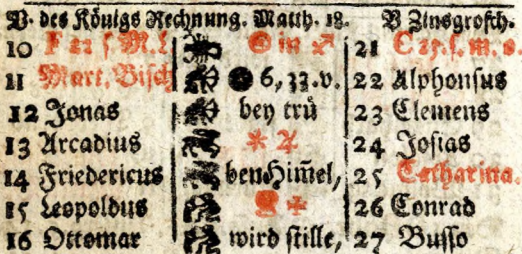 V. des Königs Rechnung. Matth. 18. V Zinsgrosch.
10 F 22 s. M. L ☉ in ♐ 21 C 23. s. m. o.
11 Mart. Bisch ● 6, 33. v. 22 Alphonsus
12 Jonas bey truͤ 23 Clemens
13 Arcadius ✶ ♃ 24 Josias
14 Friedericus ben Him̃el, 25 Catharina.
15 Leopoldus 26 Conrad
16 Ottomar wird stille, 27 Busso